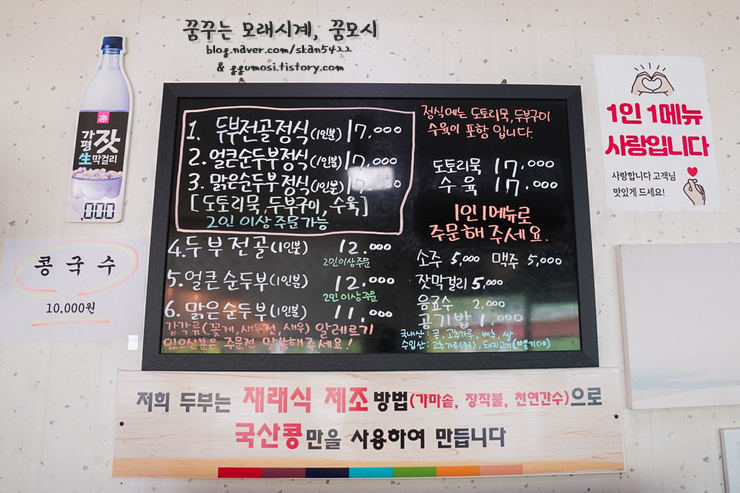 꿈꾸는 모래시계, 꿈모시
blog.naver.com/skan5422
& ggumosi.tistory.com
가평 잣
生막걸리
,000
콩국수
10,000원
1. 두부전골정식(1인분) 17,000
2. 얼큰순두부정식(1인분) 17,000
3. 맑은순두부정식(1인분) 17,000
[도토리묵, 두부구이, 수육]
2인 이상 주문가능
4. 두부전골(1인분) 12,000
2인이상주문
5. 얼큰순두부(1인분) 12,000
2인이상주문
6. 맑은순두부(1인분) 11,000
갑각류(꽃게, 새우젓, 새우) 알레르기
있으신분은 주문전 말씀해주세요!
정식에는 도토리묵, 두부구이
수육이 포함 입니다.
도토리묵 17,000
수육 17,000
1인 1메뉴로
주문해 주세요.
소주 5,000 맥주 5,000
잣막걸리 5,000
음료수 2,000
공기밥 1,000
국내산: 콩, 고추가루, 배추, 쌀
수입산: 고추가루(중국), 돼지고기(벨기에)
1인 1메뉴
사랑입니다
사랑합니다 고객님
맛있게 드세요!
저희 두부는 재래식 제조 방법(가마솥, 장작불, 천연간수)으로
국산콩만을 사용하여 만듭니다